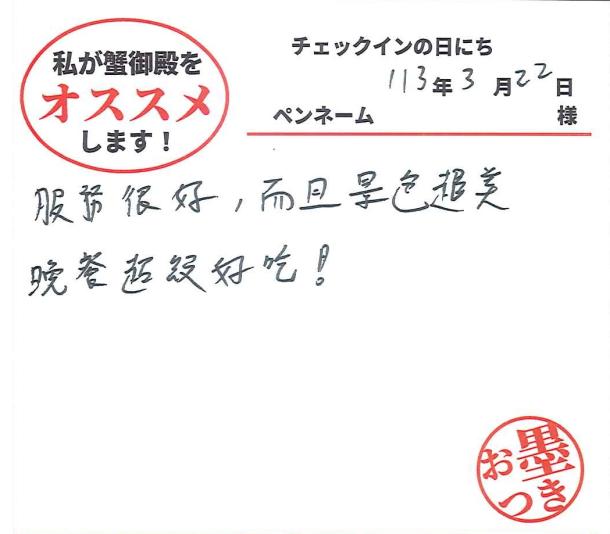 私が蟹御殿を
オススメ
します！
チェックインの日にち
113年3月22日
ペンネーム 様
服務很好，而且景色超美
晚餐超級好吃！
お墨
つき